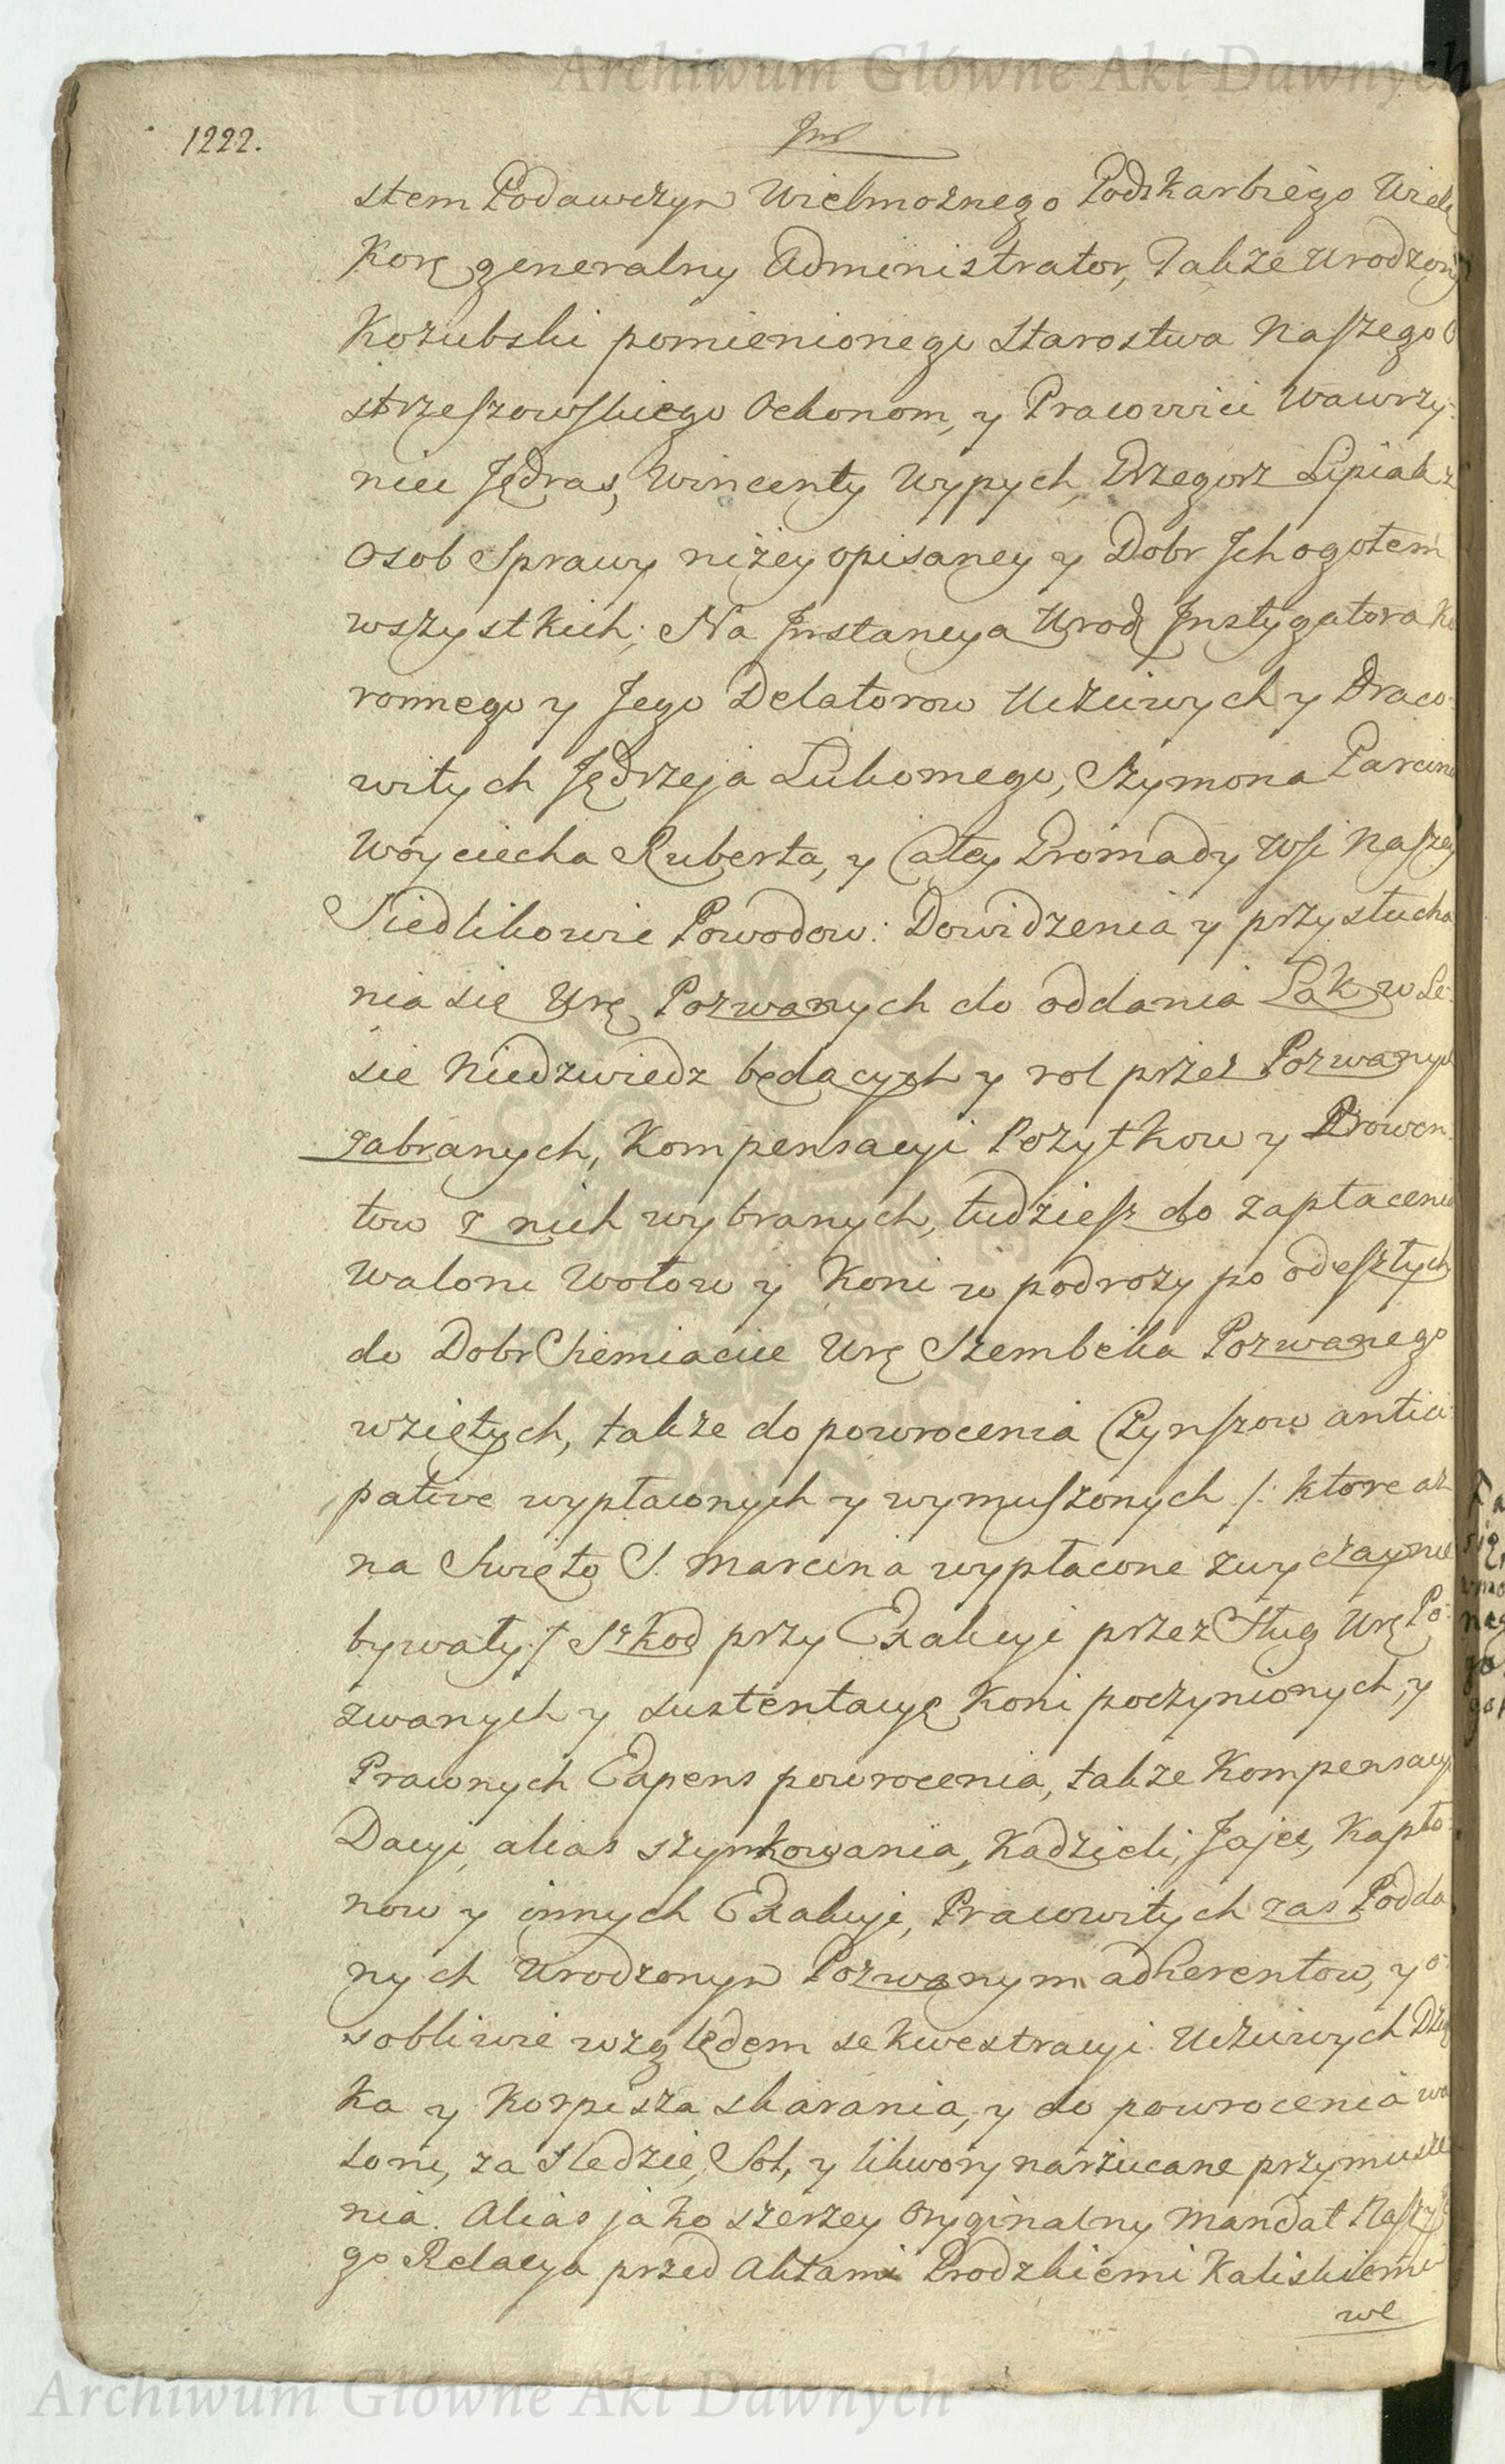 Archiwum Główne Akt Dawnych
1222.
stem Podawczyn Wielmożnego Podskarbiego Wielę
Korę generalny Administrator, Także Urodzony
Kożubski pomienionego Starostwa Naszego O
strzeszowskiego Oekonom, y Pracowici Wawrzy-
niec Jędras, Wincenty Wypych, Grzegorz Lipiak z
Osob Sprawy niżey opisaney y Dobr Jch ogołem
wszystkich; Na Jnstancya Urodz Jnstygatora Ko
ronnego y Jego Delatorow Uczciwych y Praco-
witych Jędrzeja Lukomego, Szymona Parcina
Woyciecha Ruberta, y Całey Gromady Wsi Naszey
Siedlikowie Powodow: Dowidzenia y przysłucha
nia się Urę Pozwanych do oddania Łąk w Le-
sie Niedzwiedz będących y rol przez Pozwanych
zabranych, Kompensacyi Pożytkow y Prowen-
tow z nich wybranych, tudziesz do zapłacenia
Walorn Wołow y Koni w podroży po odeszłych
do Dobr Siemiacice Urę Szembeka Pozwanego
wziętych, także do powrocenia Czynszow antici-
pative wypłaconych y wymuszonych /: ktore aż
na Swięto S. Marcina wypłacone zwyczaynie
bywały:/ Szkod przy Exakcyi przez Sług Urę Po-
zwanych y sustentacyę Koni poczynionych, y
Prawnych Expens powrocenia, także Kompensacyi
Dacyi, alias szynkowania, Kądzieli, Jajec, Kapło-
now y innych Exakcyi, Pracowitych zas Podda
nych Urodzonym Pozwanym adherentow, y o-
sobliwie względem sekwestracyi Uczciwych
ka y Korpisza skarania, y do powrocenia wa
loru, za Sledzie, Sol, y likwory narzucane przymusze
nia. Alias jako szerzey Oryginalny Mandat Nasz
go Relacya przed Aktami Grodzkiemi Kaliskiemi
we
Archiwum Główne Akt Dawnych